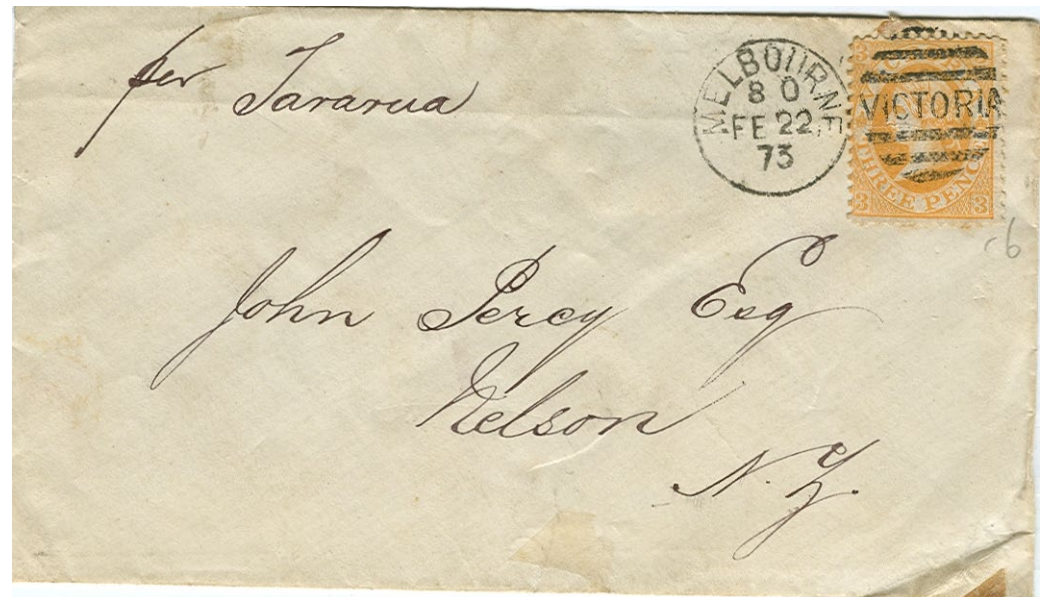 per Tararua
MELBOURNE
8 O
FE 22
73
VICTORIA
3
THREE PENCE
3 3
John Percy Esq
Nelson
N. Z.